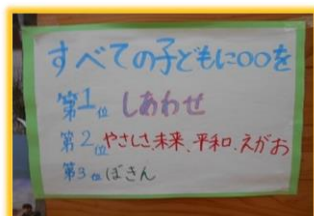 すべての子どもに○○を
第1位 しあわせ
第2位 やさしさ、未来、平和、えがお
第3位 ぼきん